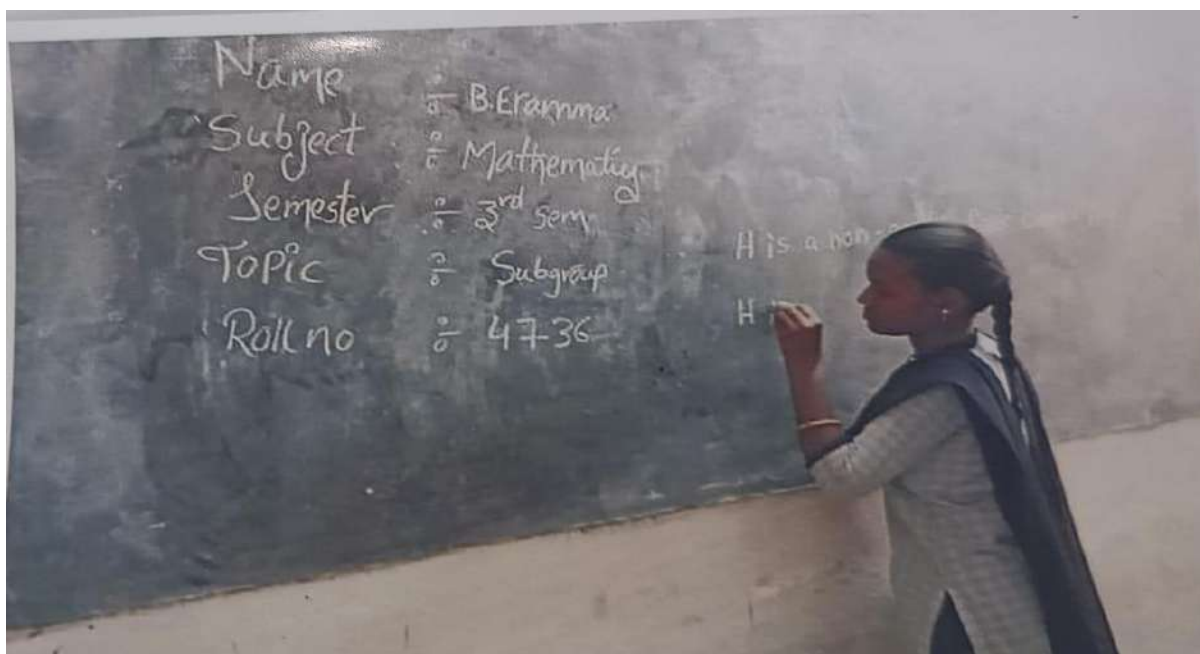 Name ÷ B.Eramma
Subject ÷ Mathematics
Semester ÷ 3rd sem
Topic ÷ Subgroup
Roll no ÷ 4736
H is a non-
H